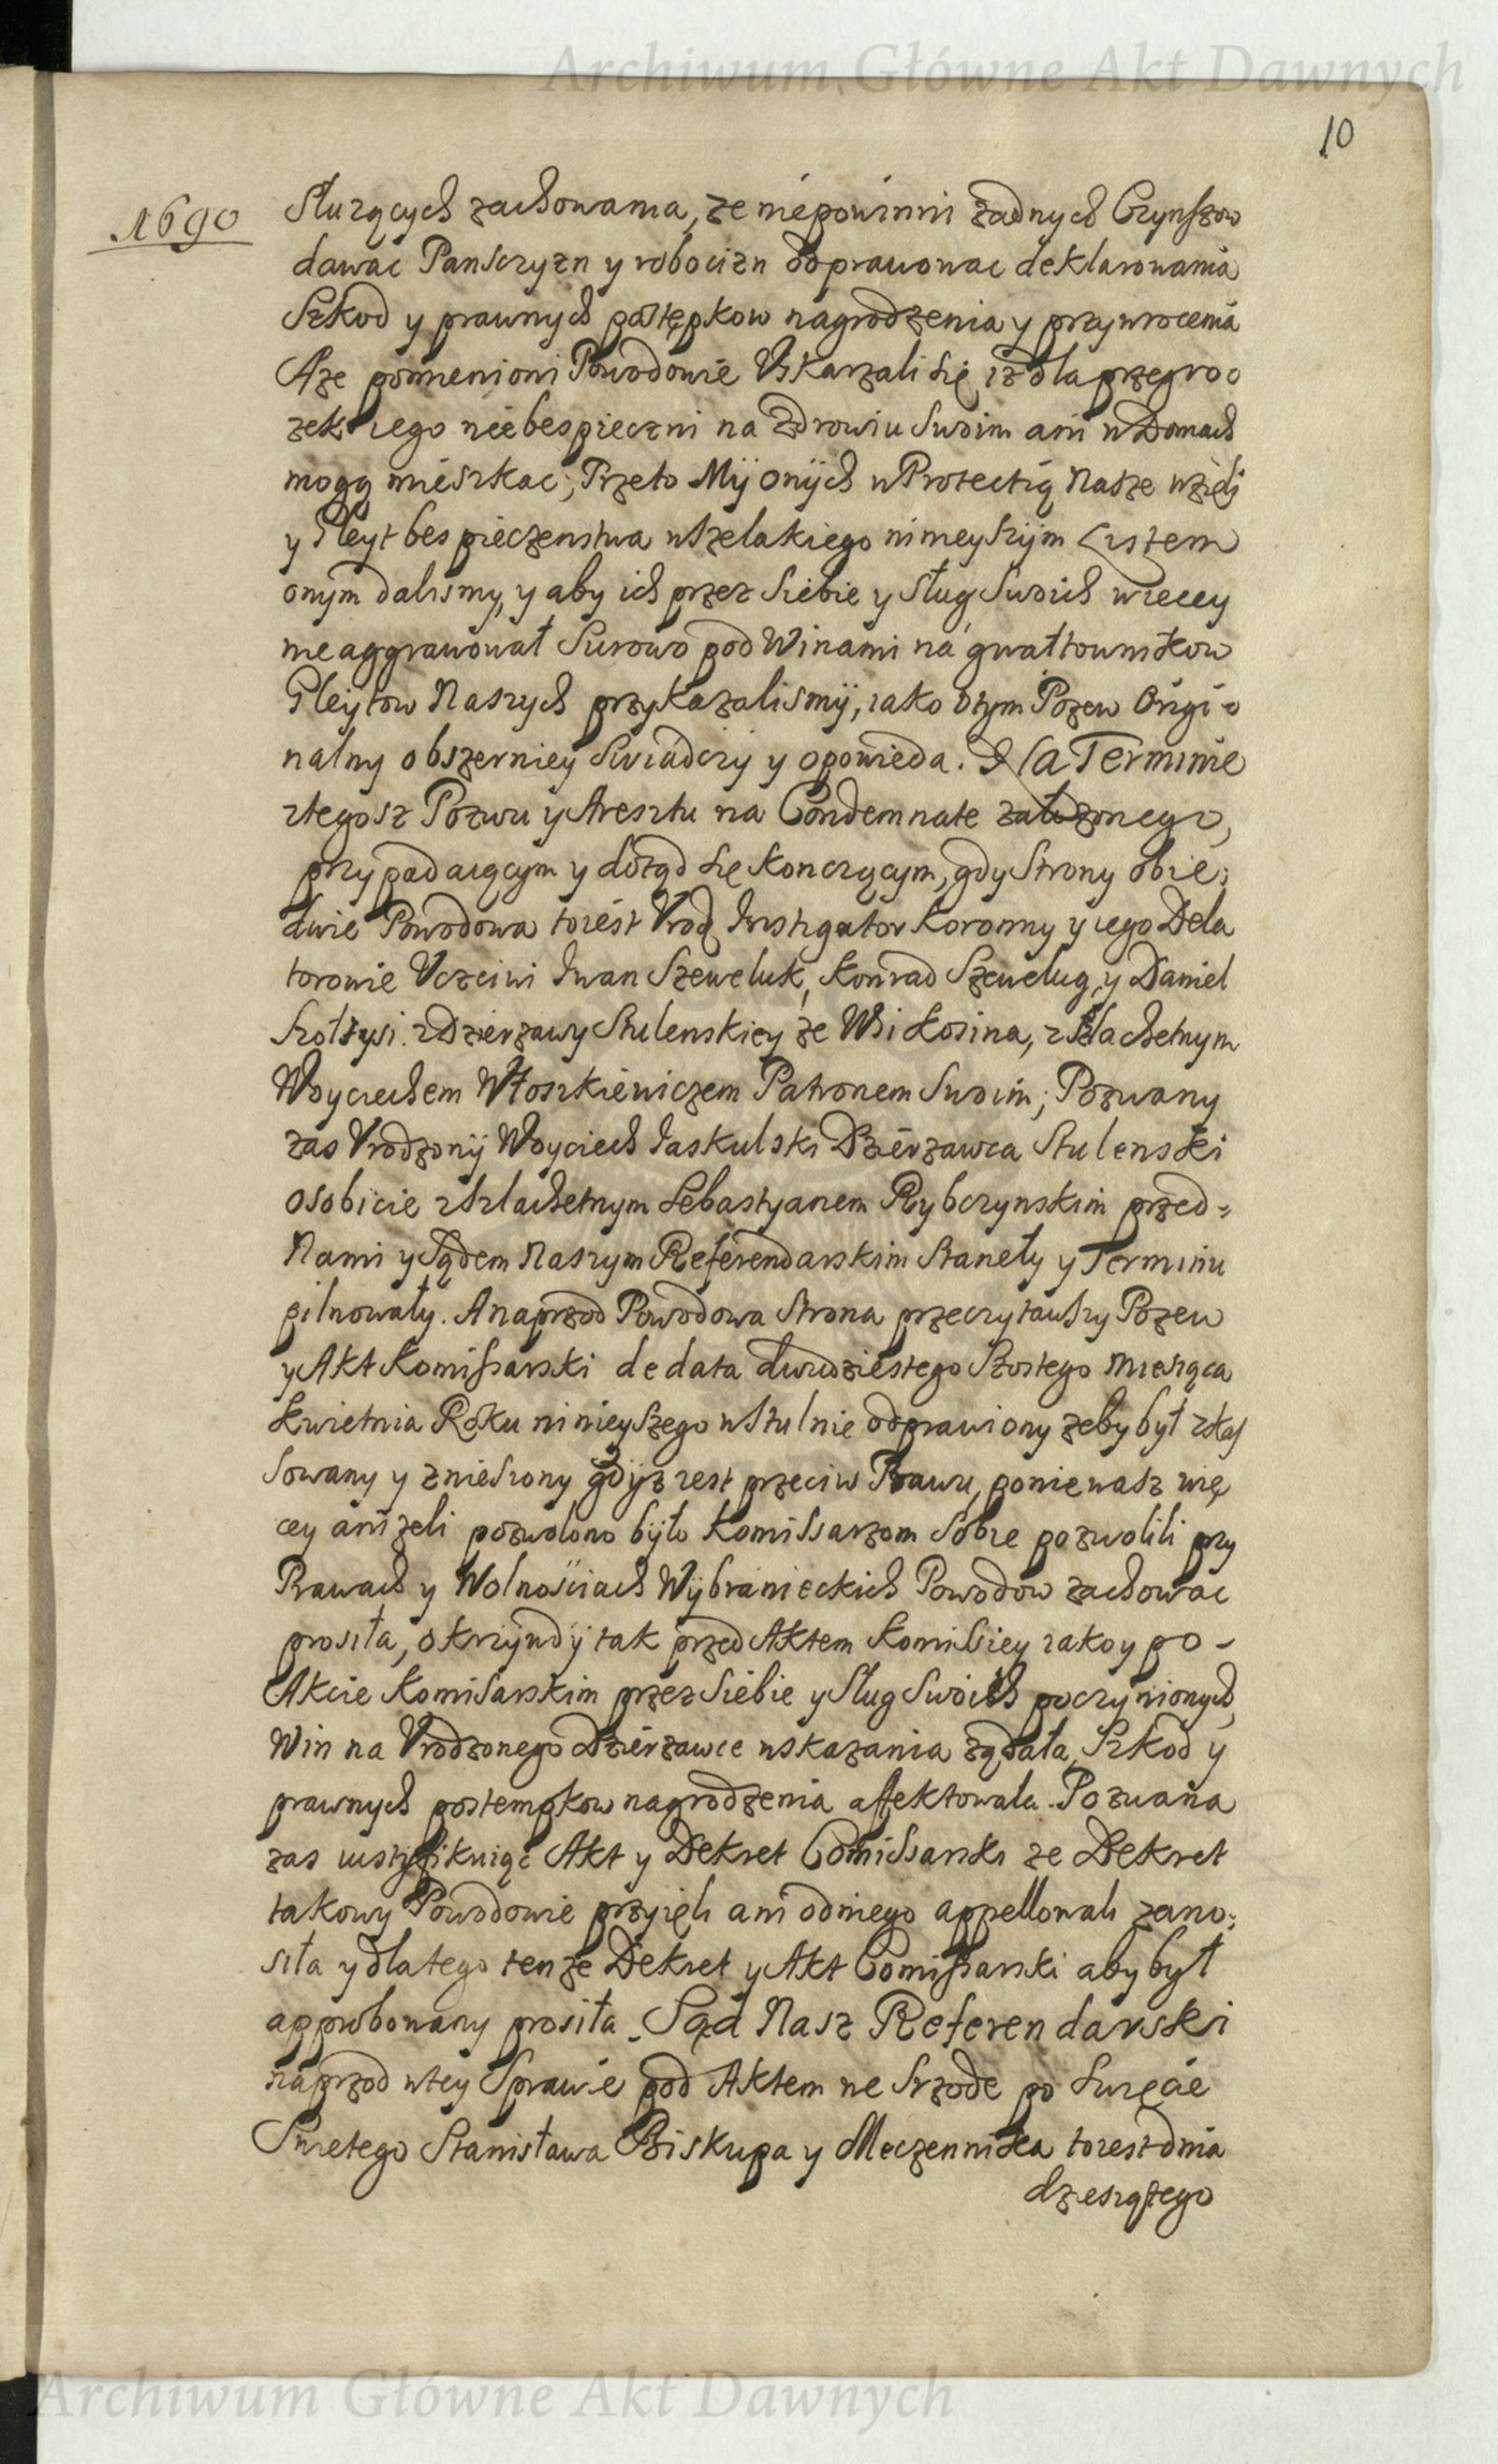 Archiwum Główne Akt Dawnych
10
1690
Służących zachowania, ze niepowinni żadnych Czynszow
dawac Panszczyzn y robocizn odprawowac deklarowania
Szkod y prawnych postępkow nagrodzenia y przywrocenia
Aze pomienioni Powodowie Vskarzali się, iz dla przegro
zek iego niebespieczni na Zdrowiu Swoim ani w Domach
mogą mieszkac; Przeto My onych w Protectią Nasze wzięli
y Gleyt bespieczenstwa wszelakiego ninieyszym Listem
onym dalismy, y aby ich przez Siebie y Sług Swoich więcey
nie aggrawował Surowo pod Winami na gwałtownikow
Gleytow Naszych przykazalismy, iako o tym Pozew Origi-
nalny obszerniey Swiadczy y opowieda. Na Terminie
ztegosz Pozwu y Aresztu na Condemnate załozonego,
przypadaiącym y dotąd się konczącym, gdy Strony obie;
dwie Powodowa toiest Vrod Instigator Koronny y iego Dela
torowie Vczciwi Iwan Szeweluk, Konrad Szewelug, y Daniel
Szołtysi z Dzierzawy Stulenskiey ze Wsi Łosina, z Szlachetnym
Woyciechem Włoszkiewiczem Patronem Swoim; Pozwany
zas Vrodzony Woyciech Iaskulski Dzierzawca Stulenski
osobiscie z Szlachetnym Sebastyanem Rybczynskim przed-
Nami y Sądem Naszym Referendarskim Staneły y Terminu
pilnowały. A naprzod Powodowa Strona przeczytawszy Pozew
y Akt Komissarski de data dwudziestego Szostego Miesiąca
Kwietnia Roku ninieyszego w Stulnie odprawiony zeby był zkas
sowany y zniesiony gdyz iest przeciw Prawu, poniewasz wię
cey anizeli pozwolono było Komissarzom Sobie pozwolili przy
Prawach y Wolnościach Wybranieckich Powodow zachowac
prosiła, o krzywdy tak przed Aktem Komissiey iako y po-
Akcie Komisarskim przez Siebie y Sług Swoich poczynionych,
Win na Vrodzonego Dzierzawce wskazania ządała, Szkod y
prawnych postempkow nagrodzenia affektowała. Pozwana
zas iustyfikuiąc Akt y Dekret Comissarski ze Dekret
takowy Powodowie przyięli ani od niego appellowali zano;
siła y dlatego tenze Dekret y Akt Comissarski aby był
approbowany prosiła. Sąd Nasz Referendarski
naprzod w tey Sprawie pod Aktem we Srzode po Swięcie
Swietego Stanisława Biskupa y Męczennika toiest dnia
dziesiątego
Archiwum Główne Akt Dawnych